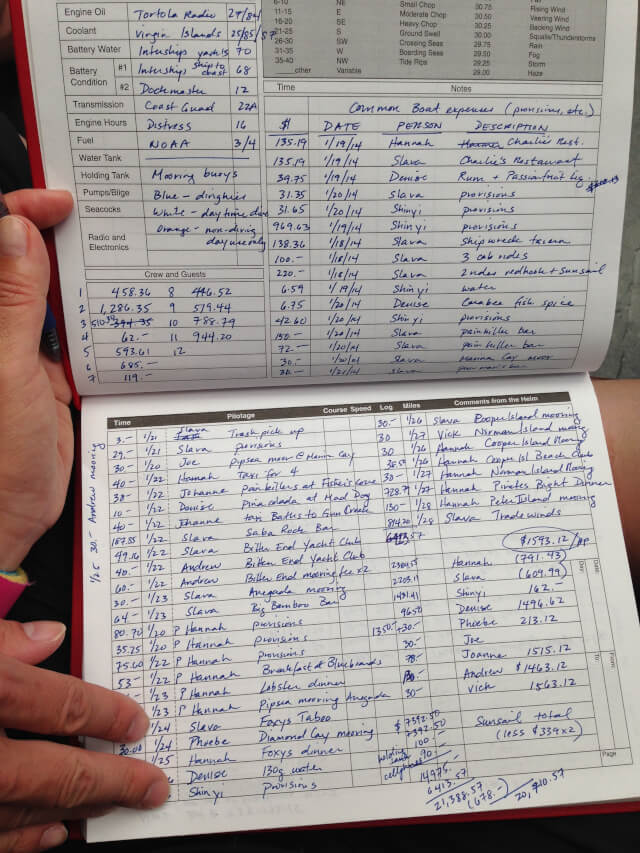 Engine Oil Tortola Radio 27/84
Coolant Virgin Islands 25/85/87
Battery Water Interships yachts 70
Battery Condition #1 Interships ship to coast 68
#2 Dockmaster 12
Transmission Coast Guard 22A
Engine Hours Distress 16
Fuel NOAA 3/4
Water Tank
Holding Tank Mooring buoys
Pumps/Bilge Blue - dinghies
Seacocks White - day time dive
Radio and Electronics Orange - non-diving day use only
Crew and Guests
1 458.36 8 446.52
2 1,286.35 9 519.44
3 394.35 10 788.79
4 62.- 11 944.20
5 593.61 12
6 685.-
7 119.-
6-10 NE
11-15 E Moderate Chop 30.50 Veering Wind
16-20 SE Heavy Chop 30.25 Backing Wind
21-25 S Ground Swell 30.00 Squalls/Thunderstorms
26-30 SW Crossing Seas 29.75 Rain
31-35 W Boarding Seas 29.50 Fog
35-40 NW Tide Rips 29.25 Storm
other Variable 29.00 Haze
Time Notes
Common Boat expenses (provisions, etc.)
$ DATE PERSON DESCRIPTION
135.19 1/19/14 Hannah Charlie's Rest.
135.19 1/19/14 Slava Charlie's Restaurant
39.75 1/19/14 Denise Rum + Passionfruit liq.
31.35 1/20/14 Slava provisions
31.65 1/20/14 Shinyi provisions
969.63 1/19/14 Shinyi provisions
138.36 1/18/14 Slava Shipwreck
100.- 1/18/14 Slava 3 cab rides
220.- 1/18/14 Slava redhook + sunsail
6.59 1/19/14 Shinyi water
6.75 1/20/14 Denise fish spice
42.60 1/20/14 Shinyi provisions
150.- 1/20/14 Slava painkiller bar
72.- 1/20/14 Slava painkiller bar
30.- Slava Marina Cay moor
Slava
Time Pilotage Course Speed Log Miles Comments from the Helm
1/25 30.- Andrew mooring
3.- 1/21 Slava Trash pick up
29.- 1/21 Slava provisions
30.- 1/20 Joe Pipsea moor @ Marina Cay
40.- 1/22 Hannah Taxi for 4
38.- 1/22 Johanne Painkillers at
10.- 1/22 Denise Pina colada at Mad Dog
40.- 1/22 Johanne taxi Baths to Gun Creek
187.55 1/22 Slava Saba Rock Bar
49.16 1/22 Slava Bitter End Yacht Club
40.- 1/22 Andrew Bitter End Yacht Club
60.- 1/22 Andrew Bitter End mooring fee x2
30.- 1/23 Slava Anegada mooring
64.- 1/23 Slava Big Bamboo Bar
80.70 1/20 P Hannah provisions
35.25 1/20 P Hannah provisions
75.60 1/22 P Hannah provisions
53.- 1/22 P Hannah Breakfast at
1/23 P Hannah Lobster dinner
1/23 P Hannah Pipsea mooring Anegada
1/24 Slava Foxys Taboo
30.00 1/24 Phoebe Diamond Cay mooring
1/25 Hannah Foxys dinner
Denise 130g water
Shinyi provisions
30.- 1/26 Slava Cooper Island mooring
30 1/27 Vick Norman Island mooring
30 1/26 Hannah Cooper Island Mooring
1/26 Hannah Cooper Isl Beach Club
30.- 1/27 Hannah Norman Island Mooring
1/27 Hannah Pirates Bight Dinner
130.- 1/28 Hannah Peter Island mooring
1/28 Slava Tradewinds
$1593.12 /pp
Hannah (791.43)
Slava (609.99)
Shinyi 162.-
Denise 1496.62
Phoebe 213.12
Joe
Joanne 1515.12
Andrew $1463.12
Vick 1563.12
1350.- +30.-
30.-
30.-
$ 7392.50
7392.50
100.-
90.-
14975.-
6413.57
21,388.57
(678.-)
Sunsail total
(less $339x2)
Date
Day
From
To
Page